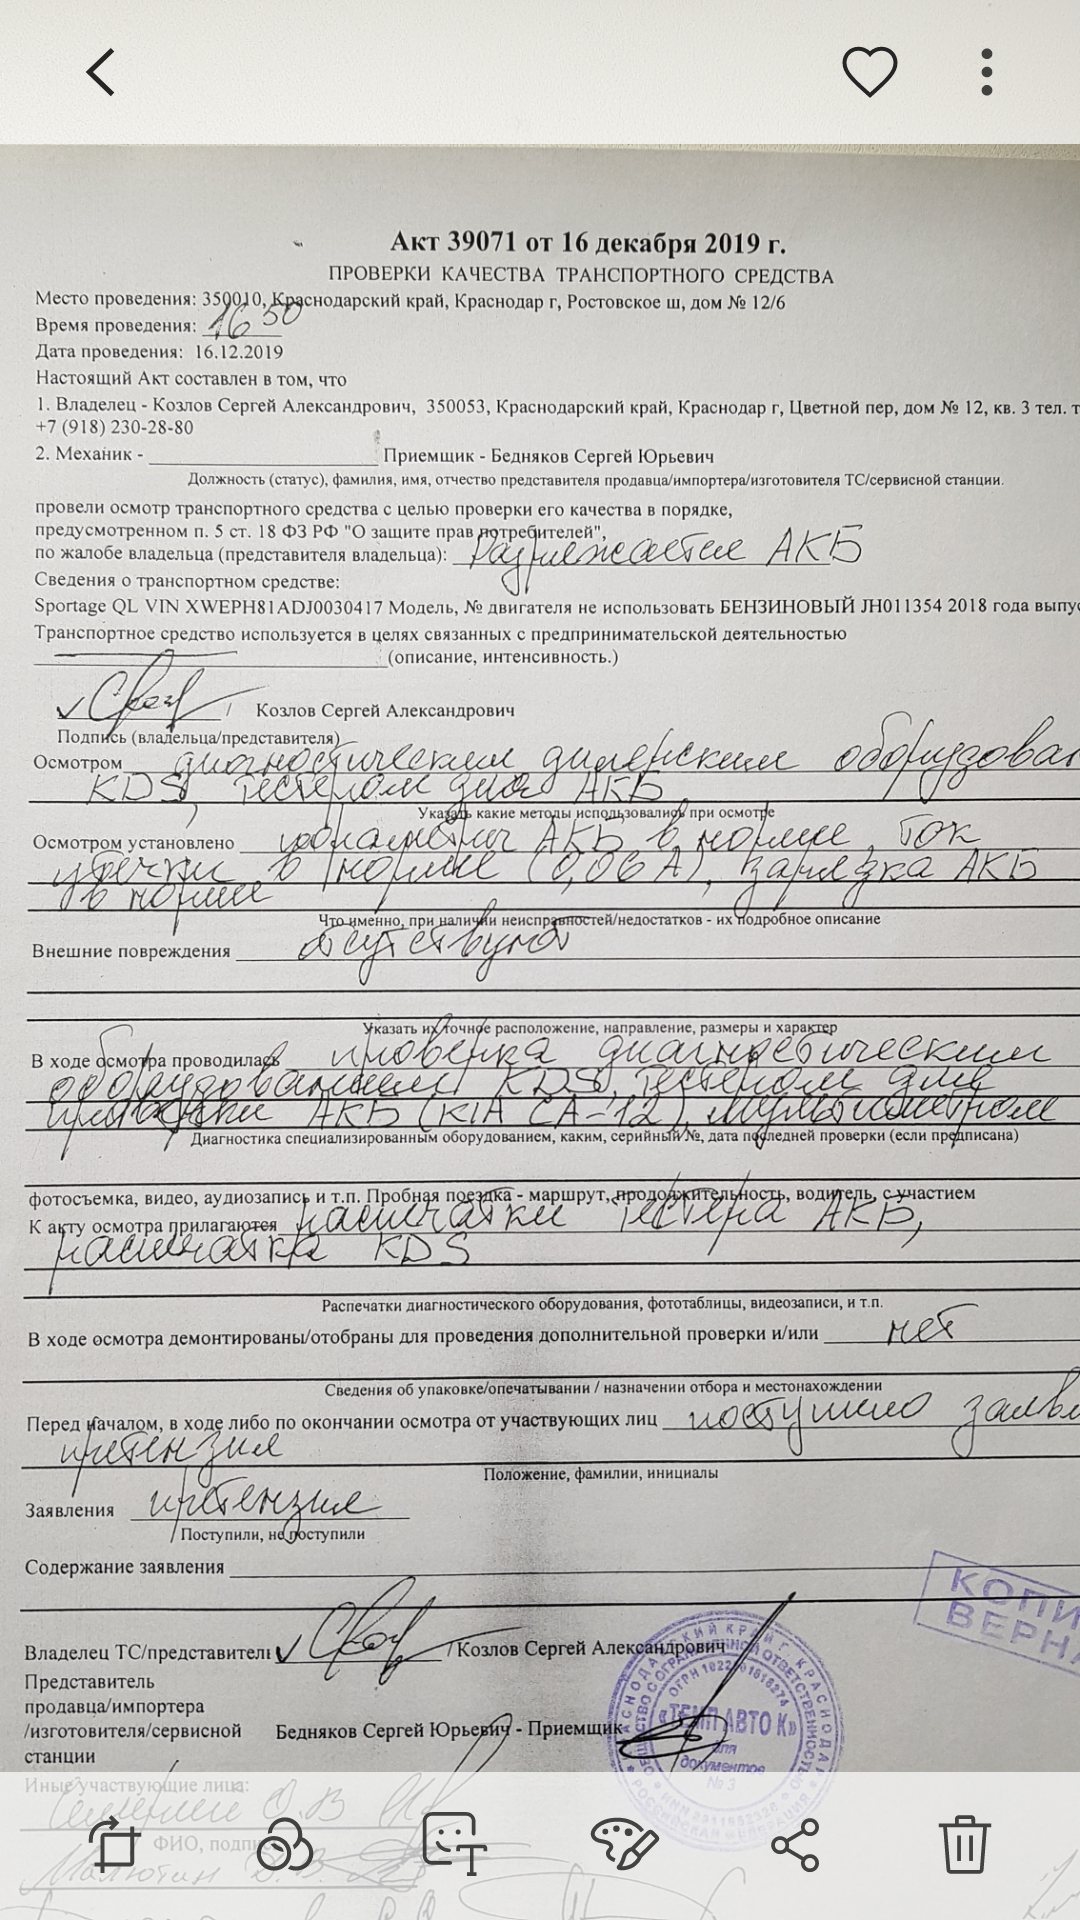 Акт 39071 от 16 декабря 2019 г.
ПРОВЕРКИ КАЧЕСТВА ТРАНСПОРТНОГО СРЕДСТВА
Место проведения: 350010, Краснодарский край, Краснодар г, Ростовское ш, дом № 12/6
Время проведения: 16 50
Дата проведения: 16.12.2019
Настоящий Акт составлен в том, что
1. Владелец - Козлов Сергей Александрович, 350053, Краснодарский край, Краснодар г, Цветной пер, дом № 12, кв. 3 тел. т
+7 (918) 230-28-80
2. Механик - Приемщик - Бедняков Сергей Юрьевич
Должность (статус), фамилия, имя, отчество представителя продавца/импортера/изготовителя ТС/сервисной станции.
провели осмотр транспортного средства с целью проверки его качества в порядке,
предусмотренном п. 5 ст. 18 ФЗ РФ "О защите прав потребителей",
по жалобе владельца (представителя владельца): Разряжается АКБ
Сведения о транспортном средстве:
Sportage QL VIN XWEPH81ADJ0030417 Модель, № двигателя не использовать БЕНЗИНОВЫЙ JH011354 2018 года выпус
Транспортное средство используется в целях связанных с предпринимательской деятельностью
(описание, интенсивность.)
/ Козлов Сергей Александрович
Подпись (владельца/представителя)
Осмотром диагностическим дилерским оборудован
KDS, тестером для АКБ
Указать какие методы использовались при осмотре
Осмотром установлено параметры АКБ в норме, ток
утечки в норме (0,06 А), зарядка АКБ
в норме
Что именно, при наличии неисправностей/недостатков - их подробное описание
Внешние повреждения отсутствуют
Указать их точное расположение, направление, размеры и характер
В ходе осмотра проводилась проверка диагностическим
оборудованием KDS, тестером для
проверки АКБ (KIA CA-12), мультиметром
Диагностика специализированным оборудованием, каким, серийный/№, дата последней проверки (если предписана)
фотосъемка, видео, аудиозапись и т.п. Пробная поездка - маршрут, продолжительность, водитель, с участием
К акту осмотра прилагаются распечатки тестера АКБ,
распечатка KDS
Распечатки диагностического оборудования, фототаблицы, видеозаписи, и т.п.
В ходе осмотра демонтированы/отобраны для проведения дополнительной проверки и/или нет
Сведения об упаковке/опечатывании / назначении отбора и местонахождении
Перед началом, в ходе либо по окончании осмотра от участвующих лиц поступило заявл
претензия
Положение, фамилии, инициалы
Заявления претензия
Поступили, не поступили
Содержание заявления
КОПИ
ВЕРНА
Владелец ТС/представитель / Козлов Сергей Александрович
Представитель
продавца/импортера
/изготовителя/сервисной
станции
Бедняков Сергей Юрьевич - Приемщик
«ТЕМП АВТО К»
для
документов
№ 3
Иные участвующие лица:
ФИО, подпи
Малютин